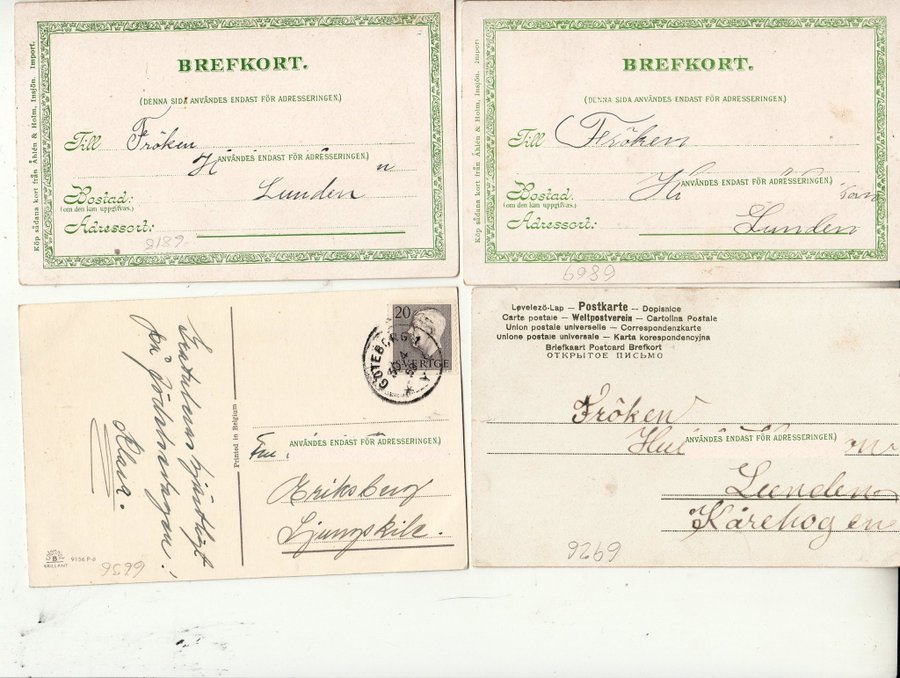 Köp sådana kort från Åhlén & Holm, Insjön. Import.
BREFKORT.
(DENNA SIDA ANVÄNDES ENDAST FÖR ADRESSERINGEN.)
Till Fröken
H ANVÄNDES ENDAST FÖR ADRESSERINGEN.) n
Bostad: Lunden
(om den kan uppgifvas.)
Adressort:
8189
Köp sådana kort från Åhlén & Holm, Insjön. Import
BREFKORT.
(DENNA SIDA ANVÄNDES ENDAST FÖR ADRESSERINGEN.)
Till Fröken
ANVÄNDES ENDAST FÖR ADRESSERINGEN.)
Bostad:
(om den kan uppgifvas.)
Adressort: Lunden
6989
Gratuleras hjärtligt
på födelsedagen!
Klara.
BRILLANT
9156 P-6
6636
Printed in Belgium
20
SVERIGE
GÖTEBORG 1
ANVÄNDES ENDAST FÖR ADRESSERINGEN.)
Eriksberg
Ljungskile.
Levelező-Lap – Postkarte – Dopisnice
Carte postale – Weltpostverein – Cartolina Postale
Union postale universelle – Correspondenzkarte
Unione postale universale – Karta korespondencyjna
Briefkaart Postcard Brefkort
ОТКРЫТОЕ ПИСЬМО
Fröken
ANVÄNDES ENDAST FÖR ADRESSERINGEN.)
Lunden
Kårehogen
9269